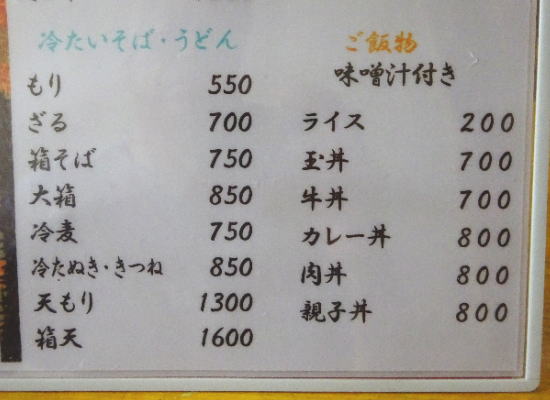 冷たいそば・うどん
もり 550
ざる 700
箱そば 750
大箱 850
冷麦 750
冷たぬき・きつね 850
天もり 1300
箱天 1600
ご飯物
味噌汁付き
ライス 200
玉丼 700
牛丼 700
カレー丼 800
肉丼 800
親子丼 800